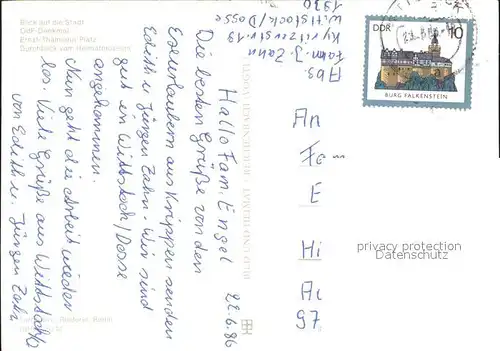 Blick auf die Stadt
OdF-Denkmal
Ernst-Thälmann-Platz
Durchblick vom Heimatmuseum
Abs.
Fahm. J. Zahn
Kyritzerstr. 19
Wittstock/Dosse
1930
DDR 10
BURG FALKENSTEIN
22.6.86
Hallo Fam. Engel
Die besten Grüße von den
Exurlaubern aus Krippen senden
Edith u. Jürgen Zahn. Wir sind
gut in Wittstock/Dosse
angekommen.
Nun geht die Arbeit wieder
los. Viele Grüße aus Wittstock/D
von Edith u. Jürgen Zahn
An
Fa
E
Hi
Al
97
privacy protection
Datenschutz
BILD UND HEIMAT REICHENBACH